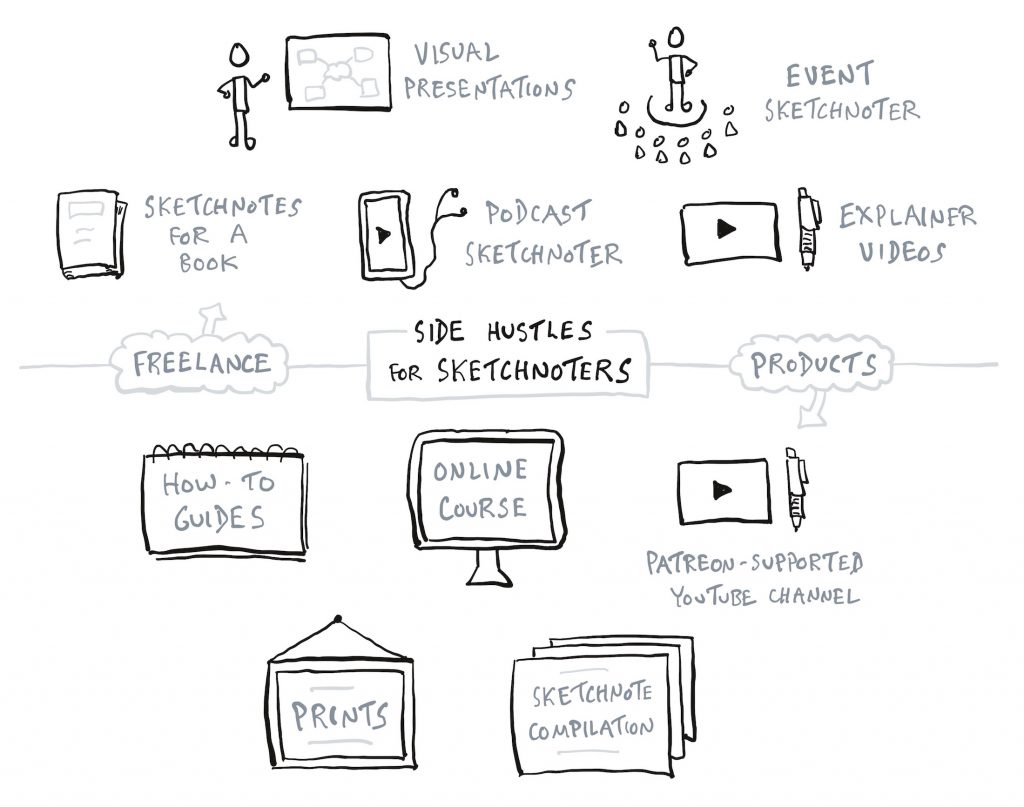 VISUAL
PRESENTATIONS
EVENT
SKETCHNOTER
SKETCHNOTES
FOR A
BOOK
PODCAST
SKETCHNOTER
EXPLAINER
VIDEOS
FREELANCE
SIDE HUSTLES
FOR SKETCHNOTERS
PRODUCTS
HOW-TO
GUIDES
ONLINE
COURSE
PATREON-SUPPORTED
YOUTUBE CHANNEL
PRINTS
SKETCHNOTE
COMPILATION